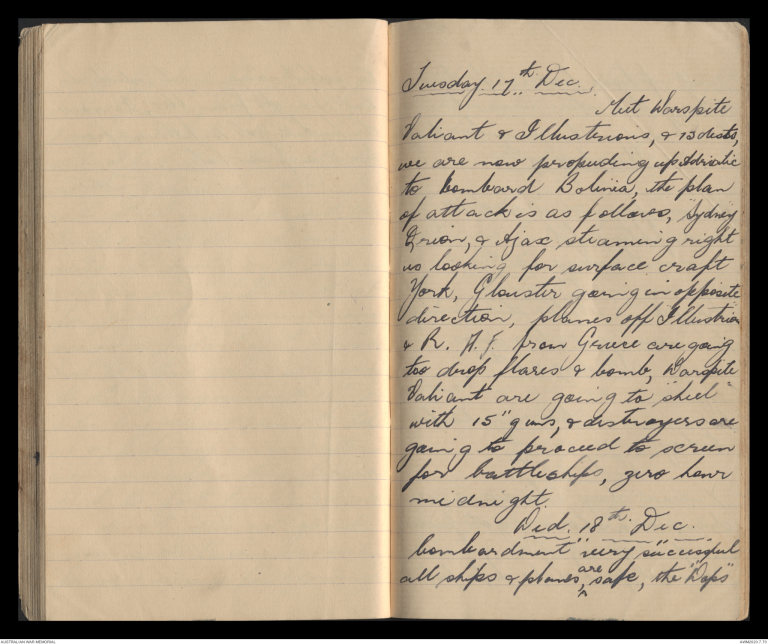 Tuesday. 17th Dec.
Met Warspite
Valiant & Illusterious, & 13 dests,
we are now propuding up Adriatic
to bombard Bolinia, the plan
of attack is as follows, Sydney
Orion, & Ajax steaming right
up looking for surface craft
York, Glouster going in opposite
direction, planes off Illustrious
& R. A. F. from Greece are going
too drop flares & bomb, Warspite
Valiant are going to "shell"
with 15" guns, & destroyers are
going to proceed to screen
for battleships, zero hour
midnight.
Wed. 18th Dec.
bombardment "very successful"
all ships & planes, are safe, the "Wops"
AUSTRALIAN WAR MEMORIAL